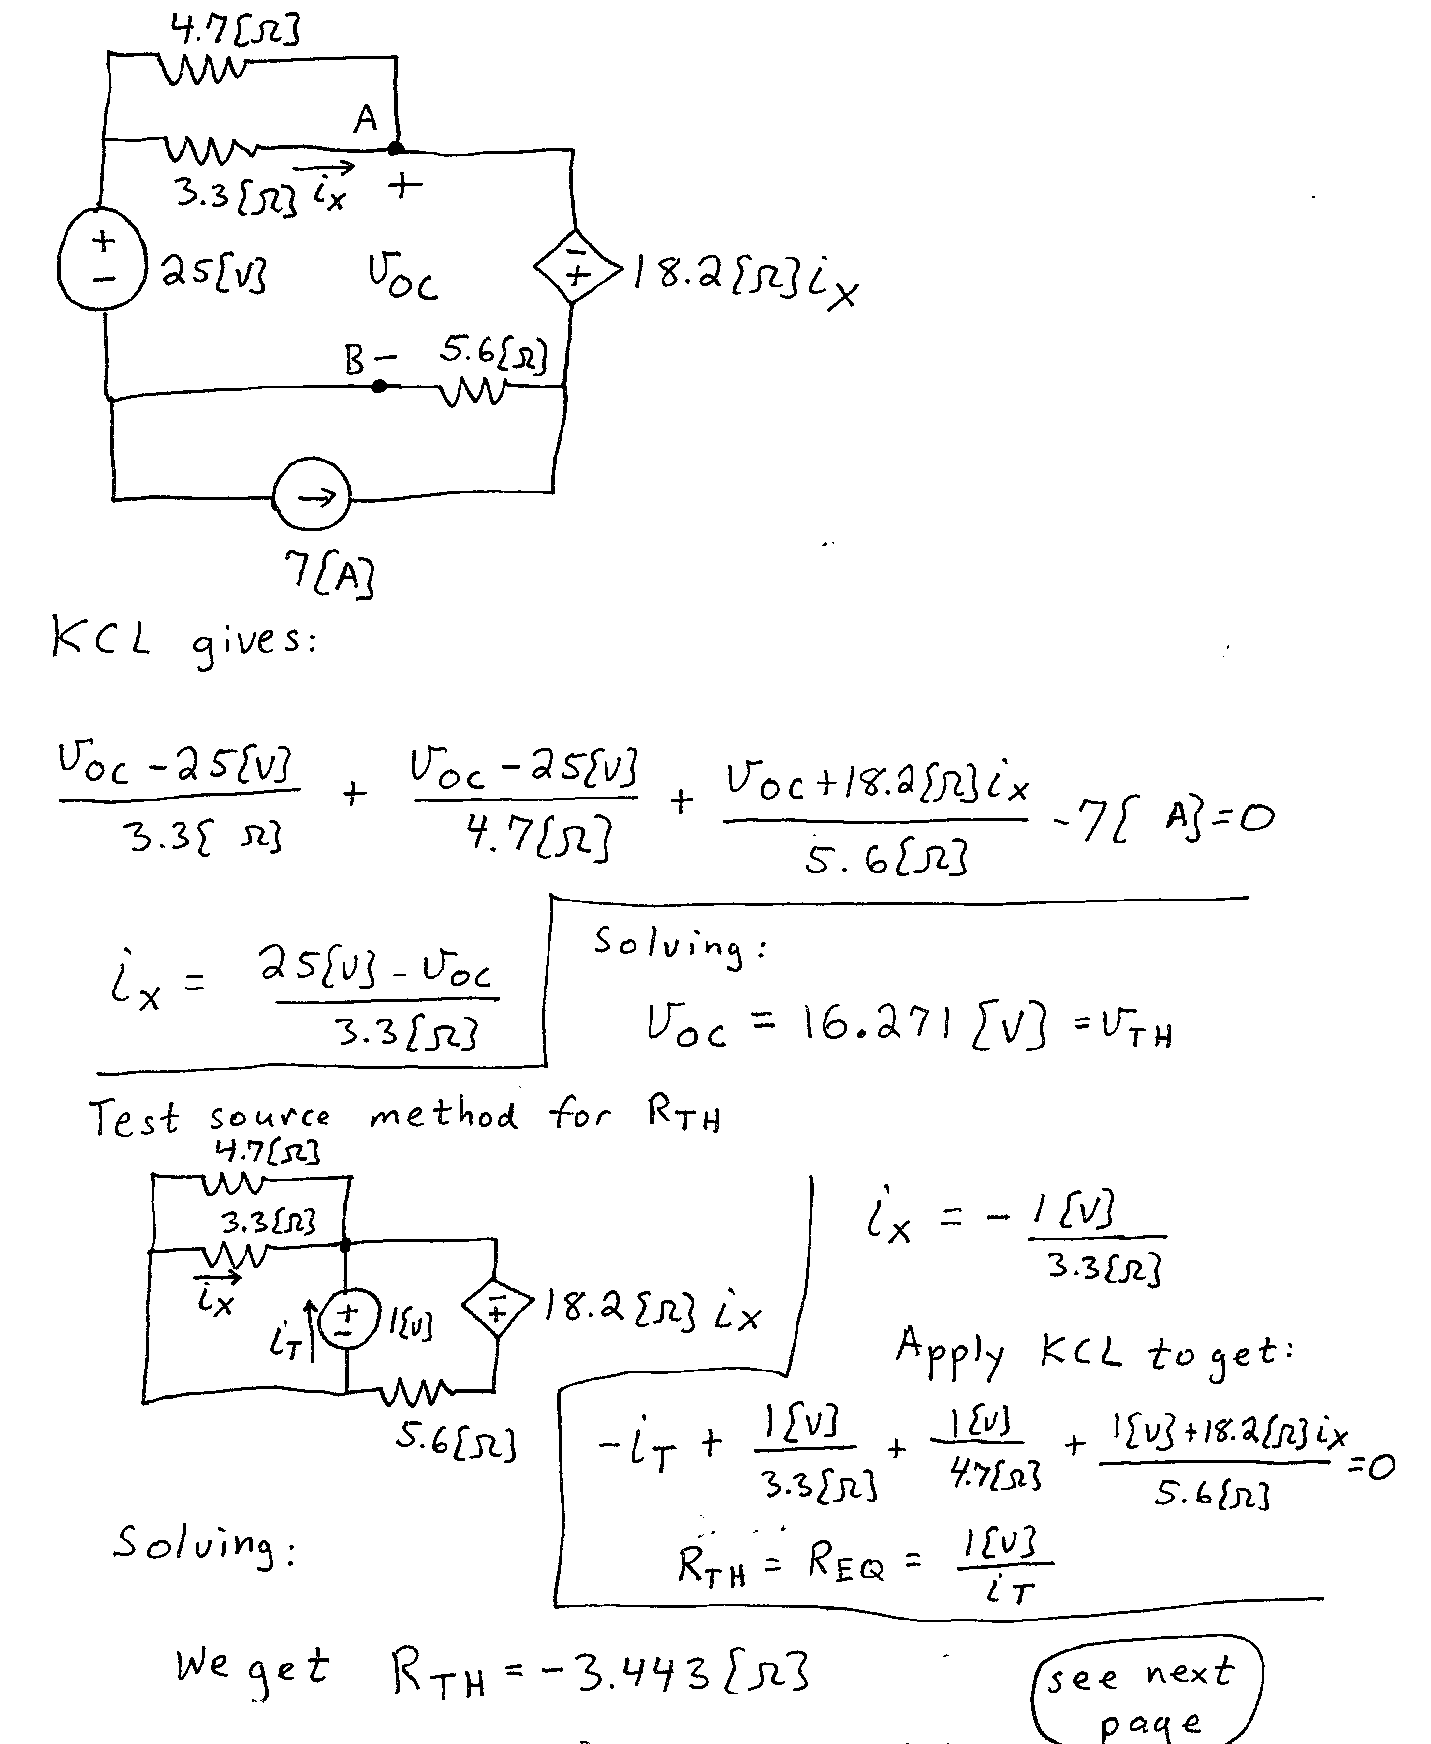 4.7[Ω]
A
3.3[Ω] iX +
+
-
25[V] vOC - + 18.2[Ω]iX
B - 5.6[Ω]
7[A]
KCL gives:
(vOC - 25[V])/3.3[Ω] + (vOC - 25[V])/4.7[Ω] + (vOC + 18.2[Ω]iX)/5.6[Ω] - 7[A] = 0
iX = (25[V] - vOC)/3.3[Ω]
Solving:
vOC = 16.271[V] = vTH
Test source method for RTH
4.7[Ω]
3.3[Ω]
iX
iT + - 1[V] - + 18.2[Ω] iX
5.6[Ω]
iX = - 1[V]/3.3[Ω]
Apply KCL to get:
-iT + 1[V]/3.3[Ω] + 1[V]/4.7[Ω] + (1[V] + 18.2[Ω]iX)/5.6[Ω] = 0
RTH = REQ = 1[V]/iT
Solving:
We get RTH = -3.443[Ω]
see next
page